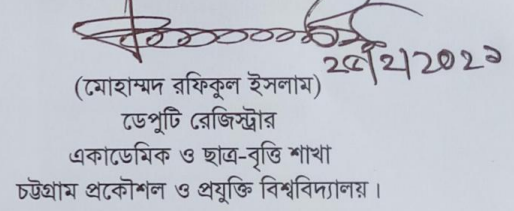 ২৫/2/202১
(মোহাম্মদ রফিকুল ইসলাম)
ডেপুটি রেজিস্ট্রার
একাডেমিক ও ছাত্র-বৃত্তি শাখা
চট্টগ্রাম প্রকৌশল ও প্রযুক্তি বিশ্ববিদ্যালয় ।